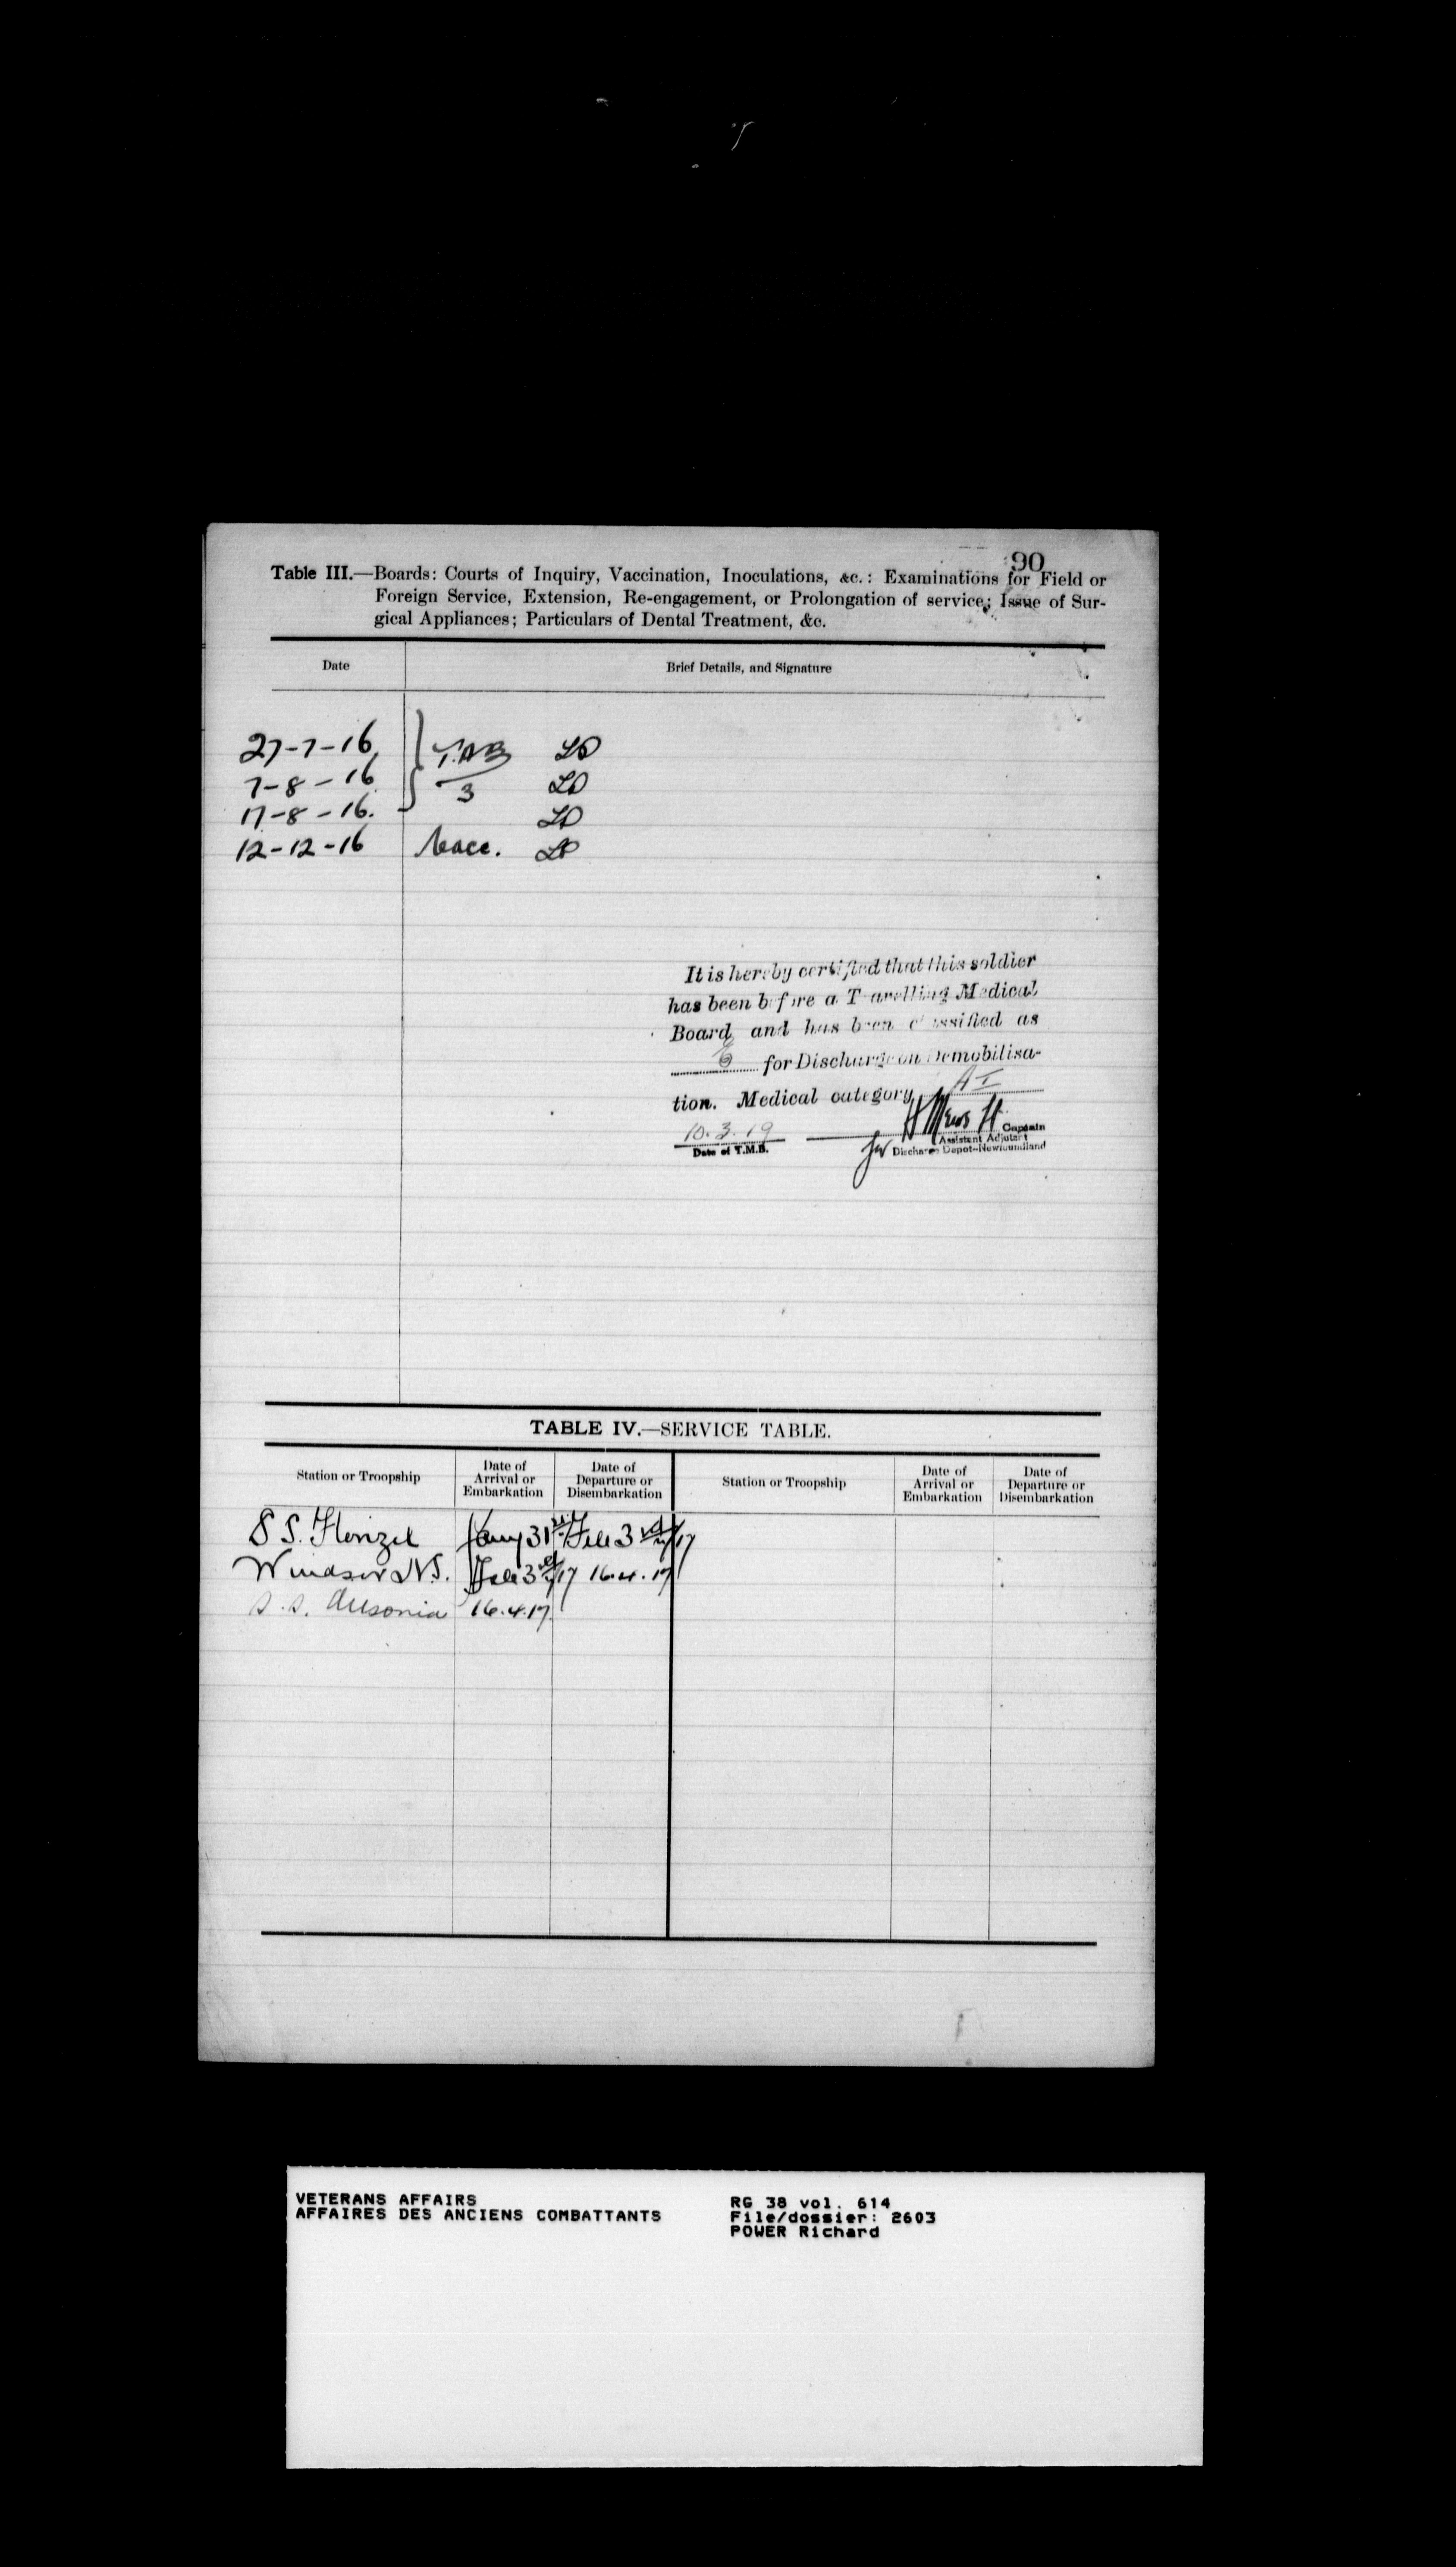 90
Table III.—Boards: Courts of Inquiry, Vaccination, Inoculations, &c.: Examinations for Field or
Foreign Service, Extension, Re-engagement, or Prolongation of service; Issue of Sur-
gical Appliances; Particulars of Dental Treatment, &c.
Date Brief Details, and Signature
27-7-16 T.A.B. LD
7-8-16 3 LD
17-8-16. LD
12-12-16 Vacc. LD
It is hereby certified that this soldier
has been before a Travelling Medical
Board and has been classified as
for Discharge on Demobilisa-
tion. Medical category A I
10.3.19 Captain
Assistant Adjutant
Date of T.M.B. for Discharge Depot-Newfoundland
TABLE IV.—SERVICE TABLE.
Station or Troopship Date of Arrival or Embarkation Date of Departure or Disembarkation Station or Troopship Date of Arrival or Embarkation Date of Departure or Disembarkation
S S. Florizel Jany 31st Feb 3rd/17
Windsor N.S. Feb 3rd/17 16.4.17
S.S. Ausonia 16.4.17
VETERANS AFFAIRS
AFFAIRES DES ANCIENS COMBATTANTS
RG 38 vol. 614
File/dossier: 2603
POWER Richard